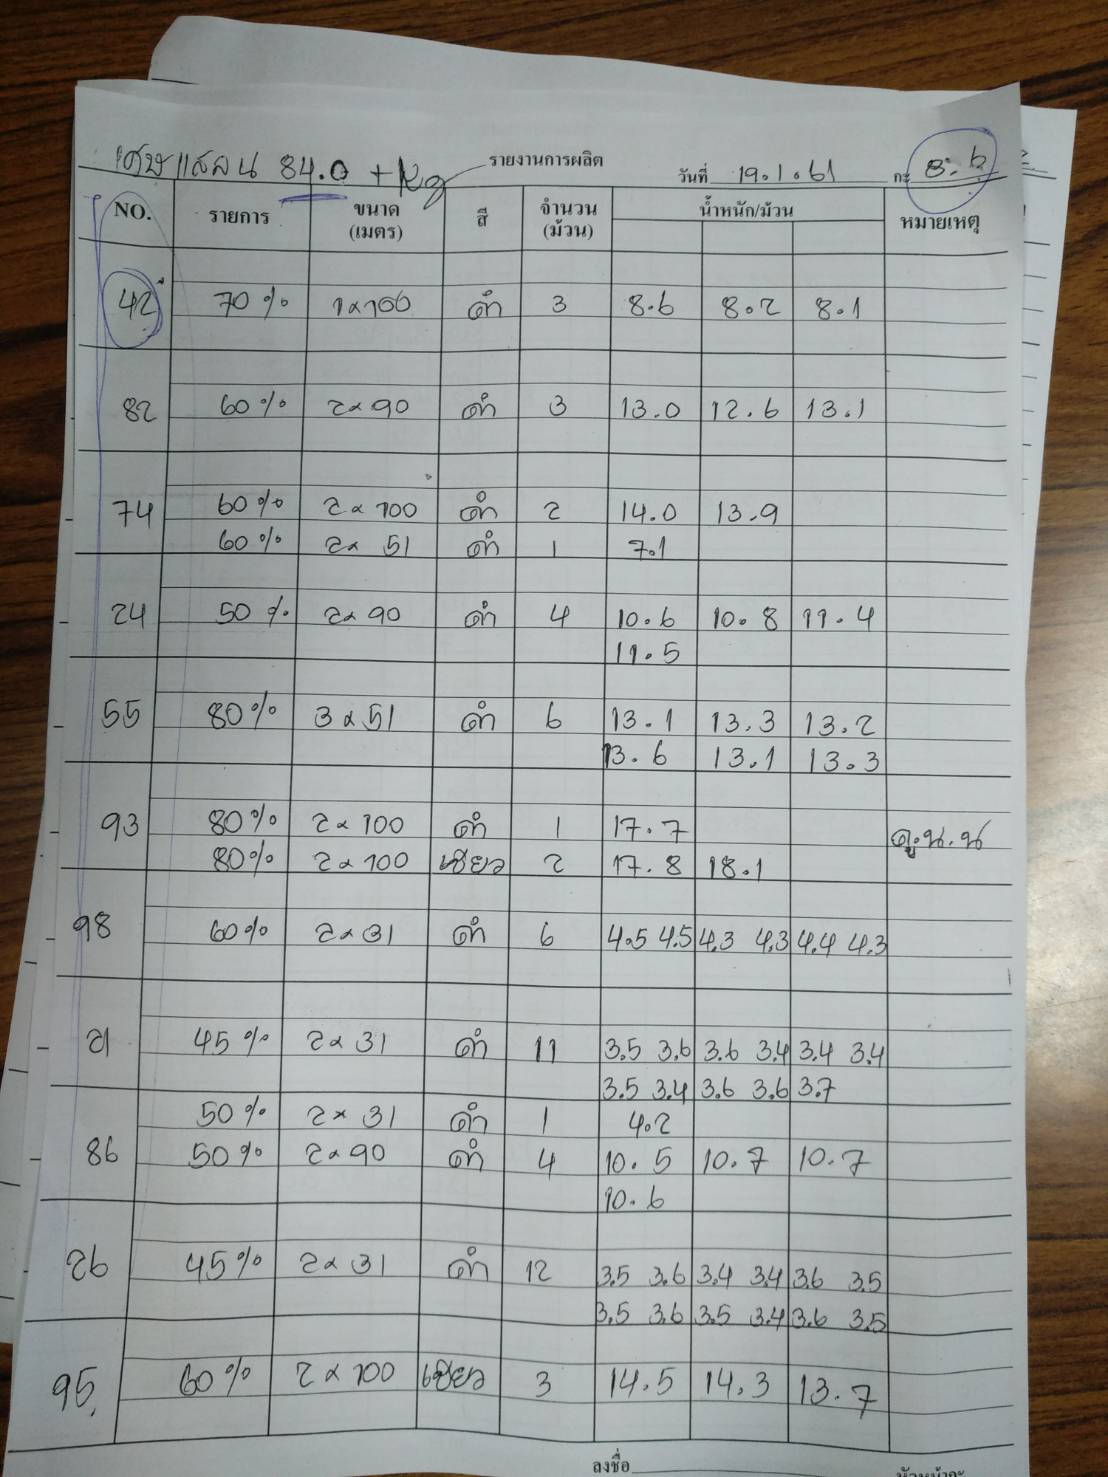 เศษแสลน 84.0 + Kg รายงานการผลิต
วันที่ 19.1.61 กะ
NO. รายการ ขนาด (เมตร) สี จำนวน (ม้วน) น้ำหนัก/ม้วน หมายเหตุ
42 70% 1x100 ดำ 3 8.6 8.2 8.1
82 60% 2x90 ดำ 3 13.0 12.6 13.1
74 60% 2x100 ดำ 2 14.0 13.9
60% 2x51 ดำ 1 7.1
24 50% 2x90 ดำ 4 10.6 10.8 11.4
11.5
55 80% 3x51 ดำ 6 13.1 13.3 13.2
13.6 13.1 13.3
93 80% 2x100 ดำ 1 17.7 ดู.น.น
80% 2x100 เขียว 2 17.8 18.1
98 60% 2x31 ดำ 6 4.5 4.5 4.3 4.3 4.4 4.3
21 45% 2x31 ดำ 11 3.5 3.6 3.6 3.4 3.4 3.4
3.5 3.4 3.6 3.6 3.7
50% 2x31 ดำ 1 4.2
86 50% 2x90 ดำ 4 10.5 10.7 10.7
10.6
26 45% 2x31 ดำ 12 3.5 3.6 3.4 3.4 3.6 3.5
3.5 3.6 3.5 3.4 3.6 3.5
95 60% 2x100 เขียว 3 14.5 14.3 13.7
ลงชื่อ